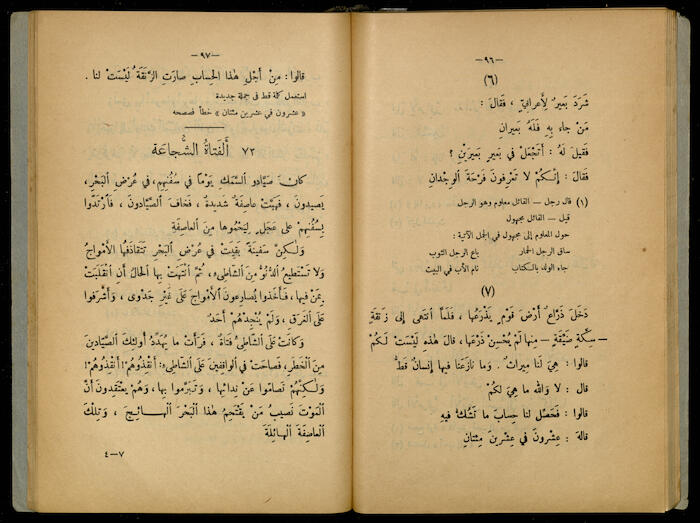 — ٩٦ —
(٦)
شَرَدَ بَعيرٌ لِأَعْرَابِيٍّ ، فَقَالَ :
مَنْ جاءَ بِهِ فَلَهُ بَعيرانِ
فَقيلَ لَهُ : أَتَجْعَلُ في بَعيرٍ بَعيرَيْنِ ؟
فَقالَ : إِنَّكُمْ لا تَعْرِفونَ فَرْحَةَ الْوِجْدانِ
(١) قال رجل — القائل معلوم وهو الرجل
قيل — القائل مجهول
حول المعلوم إلى مجهول في الجمل الآتية :
ساق الرجل الحمار باع الرجل الثوب
جاء الولد بالكتاب نام الأب في البيت
(٧)
دَخَلَ ذَرَّاعٌ أَرْضَ قَوْمٍ يَذْرَعُها ، فَلَمَّا انْتَهى إِلى زَنَقَةٍ
— سِكَّةٍ ضَيِّقَةٍ — مِنها لَمْ يُحْسِنْ ذَرْعَها، قالَ هٰذِهِ لَيْسَتْ لَكُمْ
قالُوا : هِيَ لَنا مِيراثٌ . وَما نازَعَنا فيها إِنْسانٌ قَطُّ
قال : لا وَاللهِ ما هِيَ لَكُمْ
قالوا : فَحَصِّلْ لَنا حِسابَ ما تَشُكُّ فيهِ
قالَ : عِشْرونَ في عِشْرينَ مِئتانِ
— ٩٧ —
قالوا : مِنْ أَجْلِ هٰذا الْحِسابِ صارَتِ الزَّنَقَةُ لَيْسَتْ لنا .
استعمل كلمة قط في جملة جديدة
« عشرون في عشرين مئتان » خطأ فصححه
٧٣ — أَلْفَتاةُ الشُّجاعَة
كانَ صَيّادو السَّمَكِ يَوْمًا في سُفُنِهِم، في عُرْضِ الْبَحْرِ،
يَصيدونَ ، فَهَبَّتْ عاصِفَةٌ شَديدَةٌ ، فَخافَ الصَّيّادُونَ ، فَارْتَدُّوا
بِسُفُنِهِمْ على عَجَلٍ لِيَحْموها مِنَ العاصِفَةِ
وَلٰكِنَّ سَفينَةً بَقِيَتْ في عُرْضِ الْبَحْرِ تَتَقاذَفُها الْأَمْواجُ
وَلا تَسْتَطيعُ الدُّنُوَّ مِنَ الشّاطِئِ، ثُمَّ انْتَهَتْ بِها الْحالُ أَنِ انْقَلَبَتْ
بِمَنْ فيها، فَأَخَذُوا يُصارِعونَ الْأَمْواجَ عَلى غَيْرِ جَدْوى ، وَأَشْرَفوا
عَلى الْغَرَقِ ، وَلَمْ يُنْجِدْهُمْ أَحَدٌ
وَكانَتْ عَلى الشّاطِئِ فَتاةٌ ، فَرَأَتْ ما يُهَدِّدُ أُولٰئِكَ الصَّيّادينَ
مِنَ الْخَطَرِ، فَصاحَتْ في الْواقِفينَ عَلى الشّاطِئِ: أَنْقِذُوهُمْ! أَنْقِذُوهُمْ!
وَلٰكِنَّهُمْ تَصامُّوا عَنْ نِدائِها ، وَتَبَرَّموا بِها، وَهُمْ يَعْتَقِدونَ أَنَّ
الْمَوْتَ نَصيبُ مَنْ يَقْتَحِمُ هٰذا الْبَحْرَ الْهائِجَ ، وَتِلْكَ
الْعاصِفَةَ الْهائِلَةَ
٧—٤